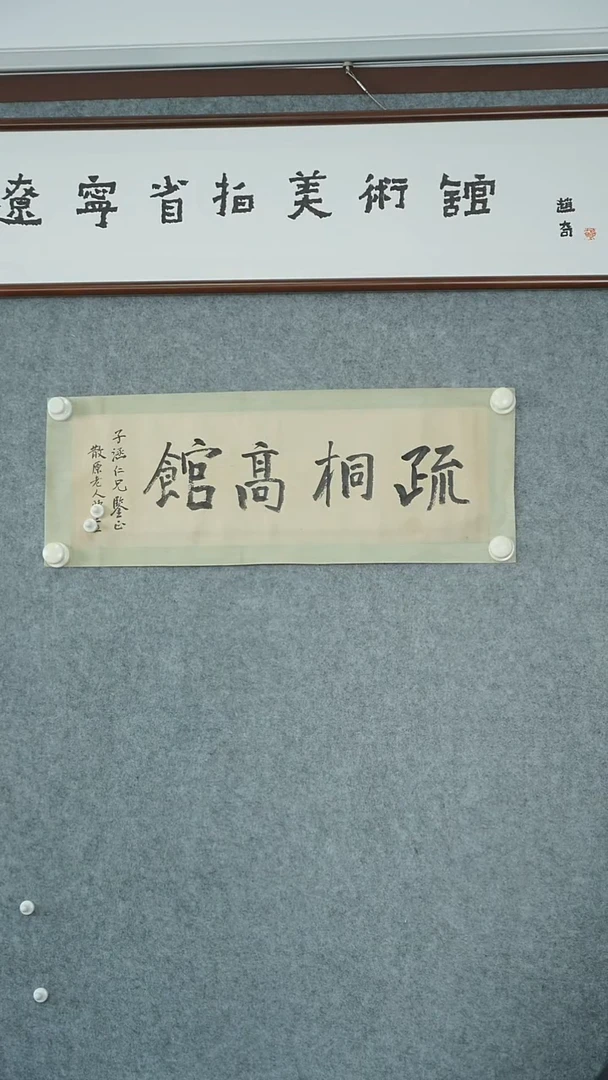 遼寧省拍美術館
趙奇
疏桐高館
子涵仁兄鑒正
散原老人